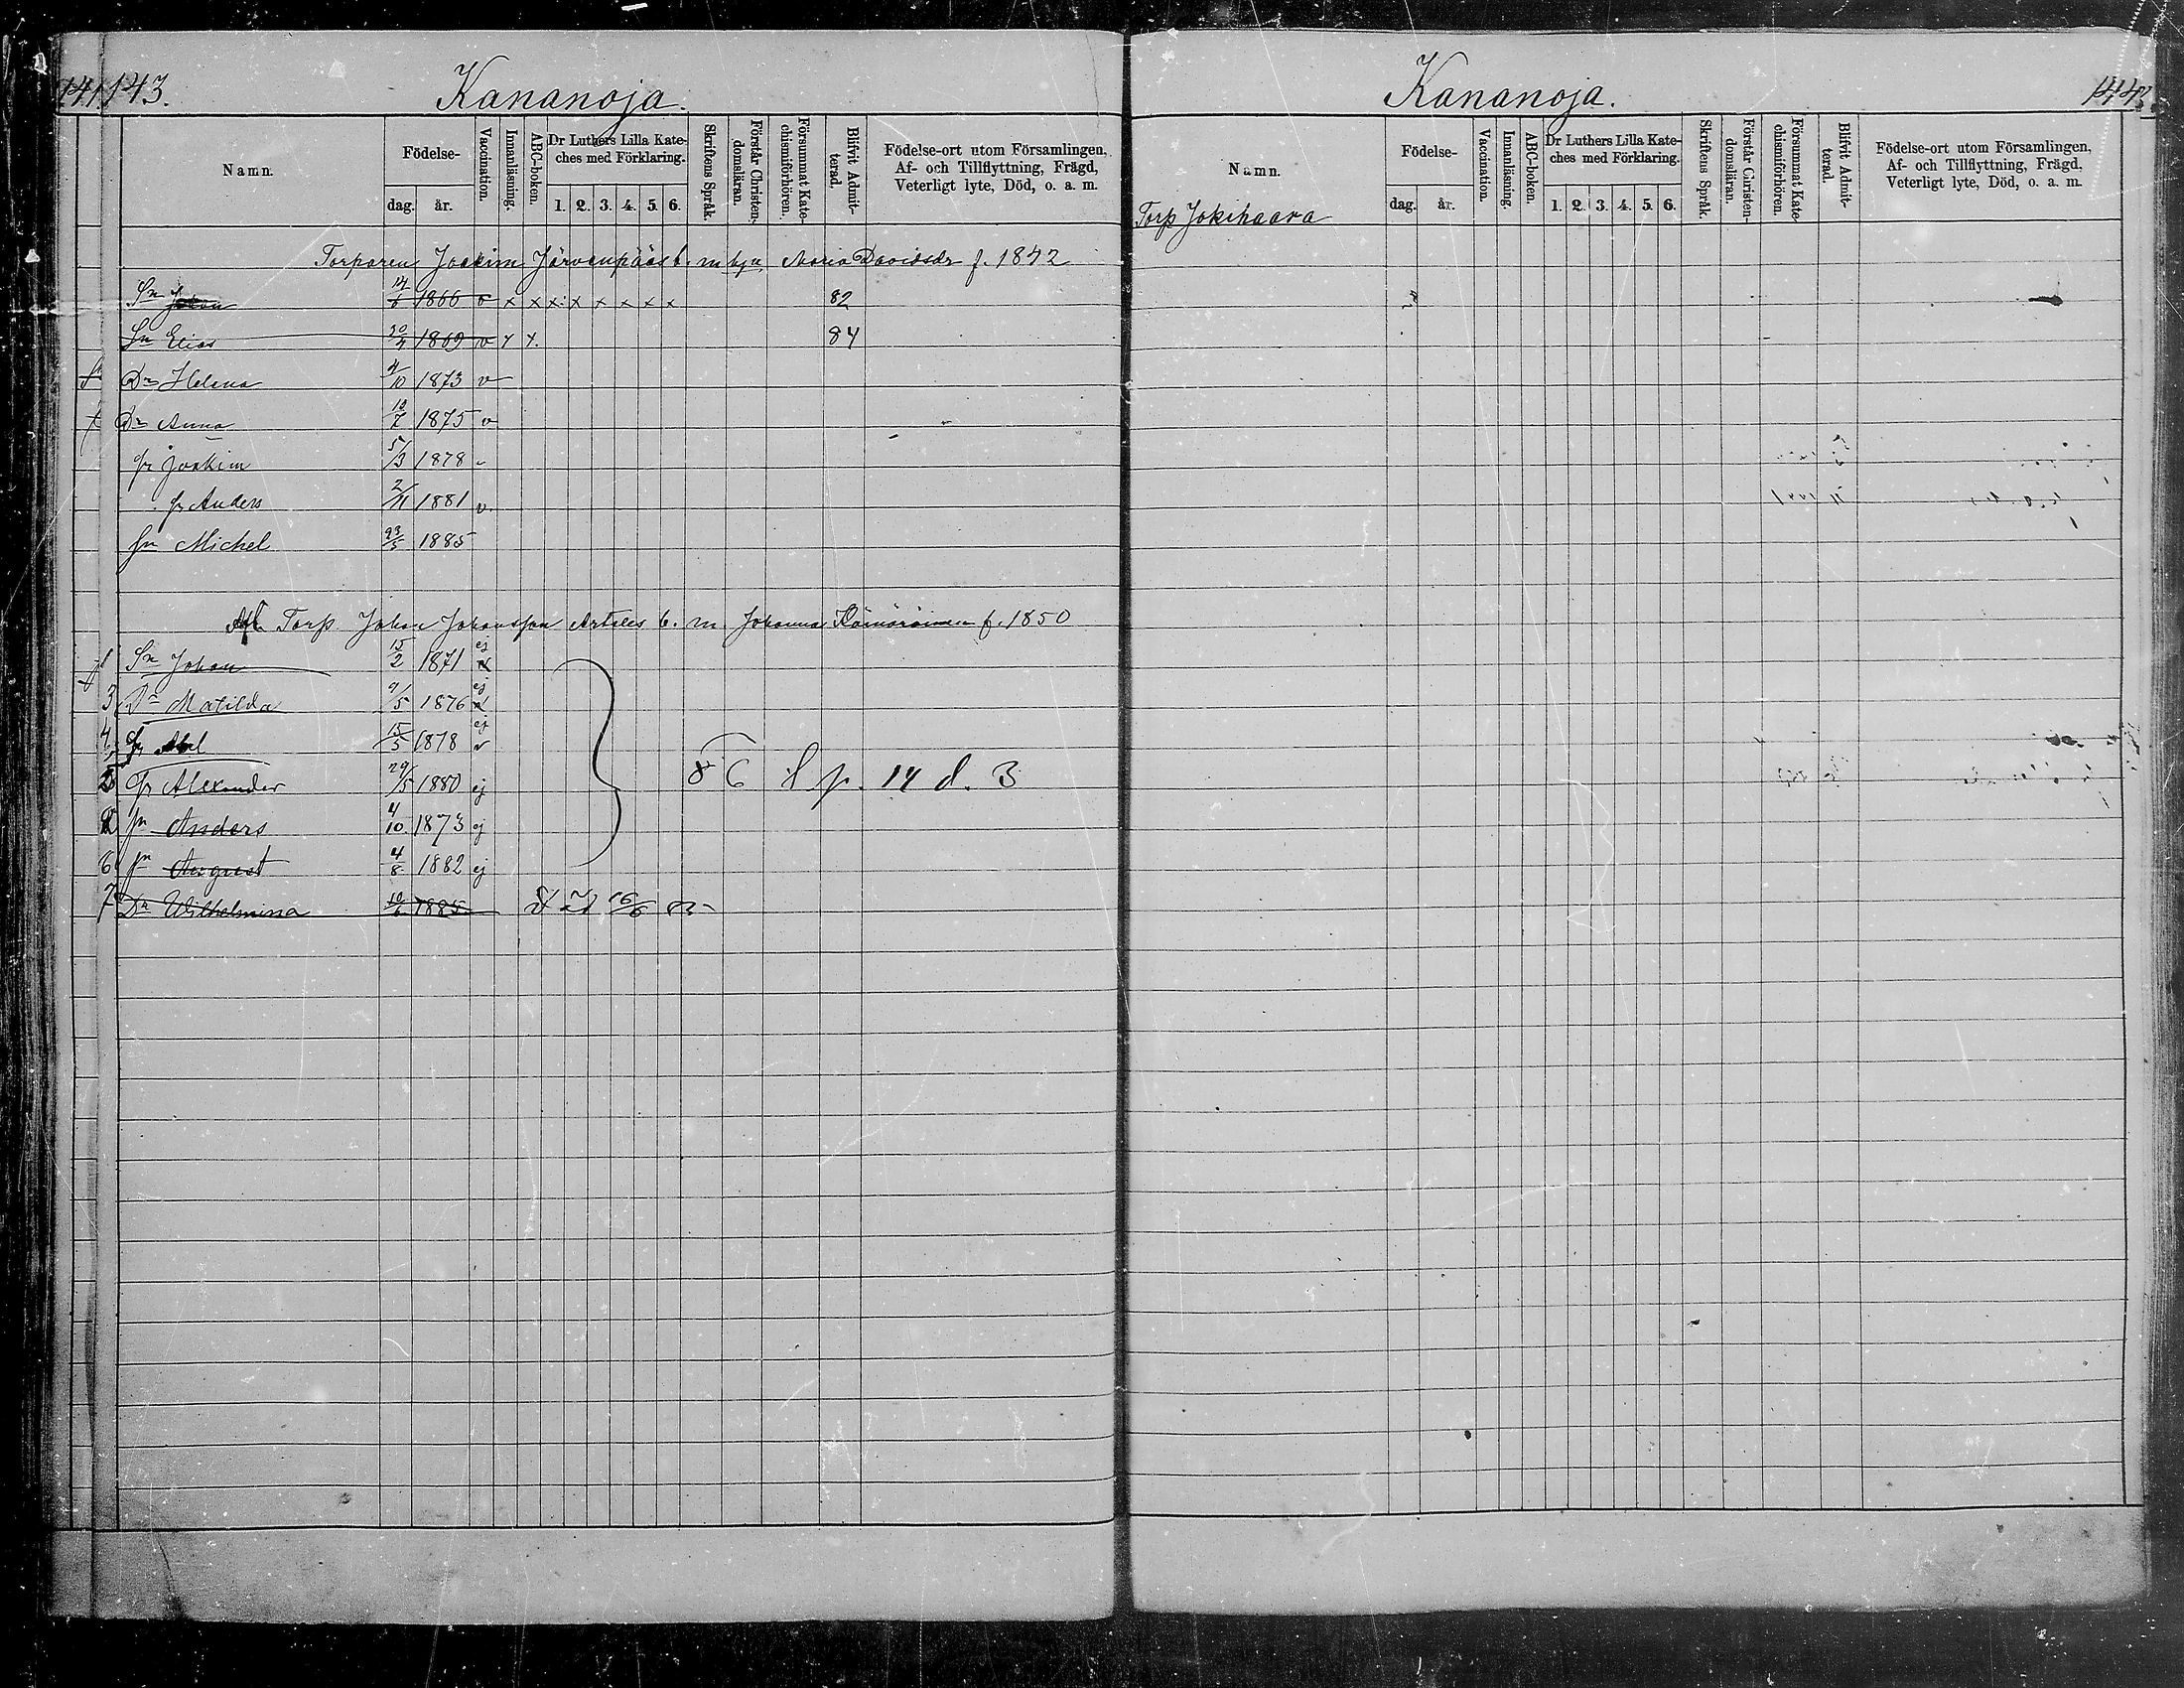 141. 143. Kananoja.
Namn. Födelse- dag. år. Vaccination. Innanläsning. ABC-boken. Dr Luthers Lilla Kate-ches med Förklaring. 1. 2. 3. 4. 5. 6. Skriftens Språk. Förstår Christen-domsläran. Försummat Kate-chismiförhören. Blifvit Admit-terad. Födelse-ort utom Församlingen, Af- och Tillflyttning, Frägd, Veterligt lyte, Död, o. a. m.
Torparen Joakim Järvenpääs b. m h. Maria Davidsdr f. 1842
Sn Johan 14/6 1866 v x x x x x x x x 82
Sn Elias 20/4 1869 v x x. 84
Dr Helena 4/10 1873 v
Dr Anna 13/7 1875 v
Sn Joakim 5/3 1878 v
Sn Anders 2/11 1881 v.
Sn Michel 23/5 1885
Torp. Johan Johansson Artales b. m. Johanna f. 1850
1 Sn Johan 15/2 1871 ej
3 Dr Matilda 9/5 1876 ej
4 Sn Abel 15/5 1878 ej v
5 Sn Alexander 29/5 1880 ej
86 l p. 14 d. 3
2 Sn Anders 4/10 1873 ej
6 Sn August 4/8 1882 ej
7 Dr Wilhelmina 10/6 1885
Kananoja. 144
Namn. Födelse- dag. år. Vaccination. Innanläsning. ABC-boken. Dr Luthers Lilla Kate-ches med Förklaring. 1. 2. 3. 4. 5. 6. Skriftens Språk. Förstår Christen-domsläran. Försummat Kate-chismiförhören. Blifvit Admit-terad. Födelse-ort utom Församlingen, Af- och Tillflyttning, Frägd, Veterligt lyte, Död, o. a. m.
Torp Jokihaara